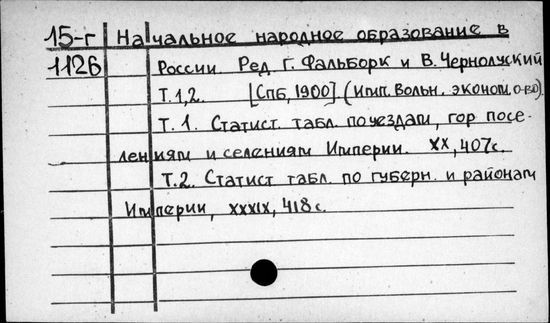 15-г Начальное народное образование в
1126 России. Ред. Г. Фальборк и В. Чернолуский
Т.1,2. [Спб, 1900] (Имп. Вольн. эконом. о-во).
Т. 1. Статист. табл. по уездам, гор. посе-
лениям и селениям Империи. XX, 407с.
Т.2. Статист табл. по губерн. и районам
Империи, XXXIX, 418 с.